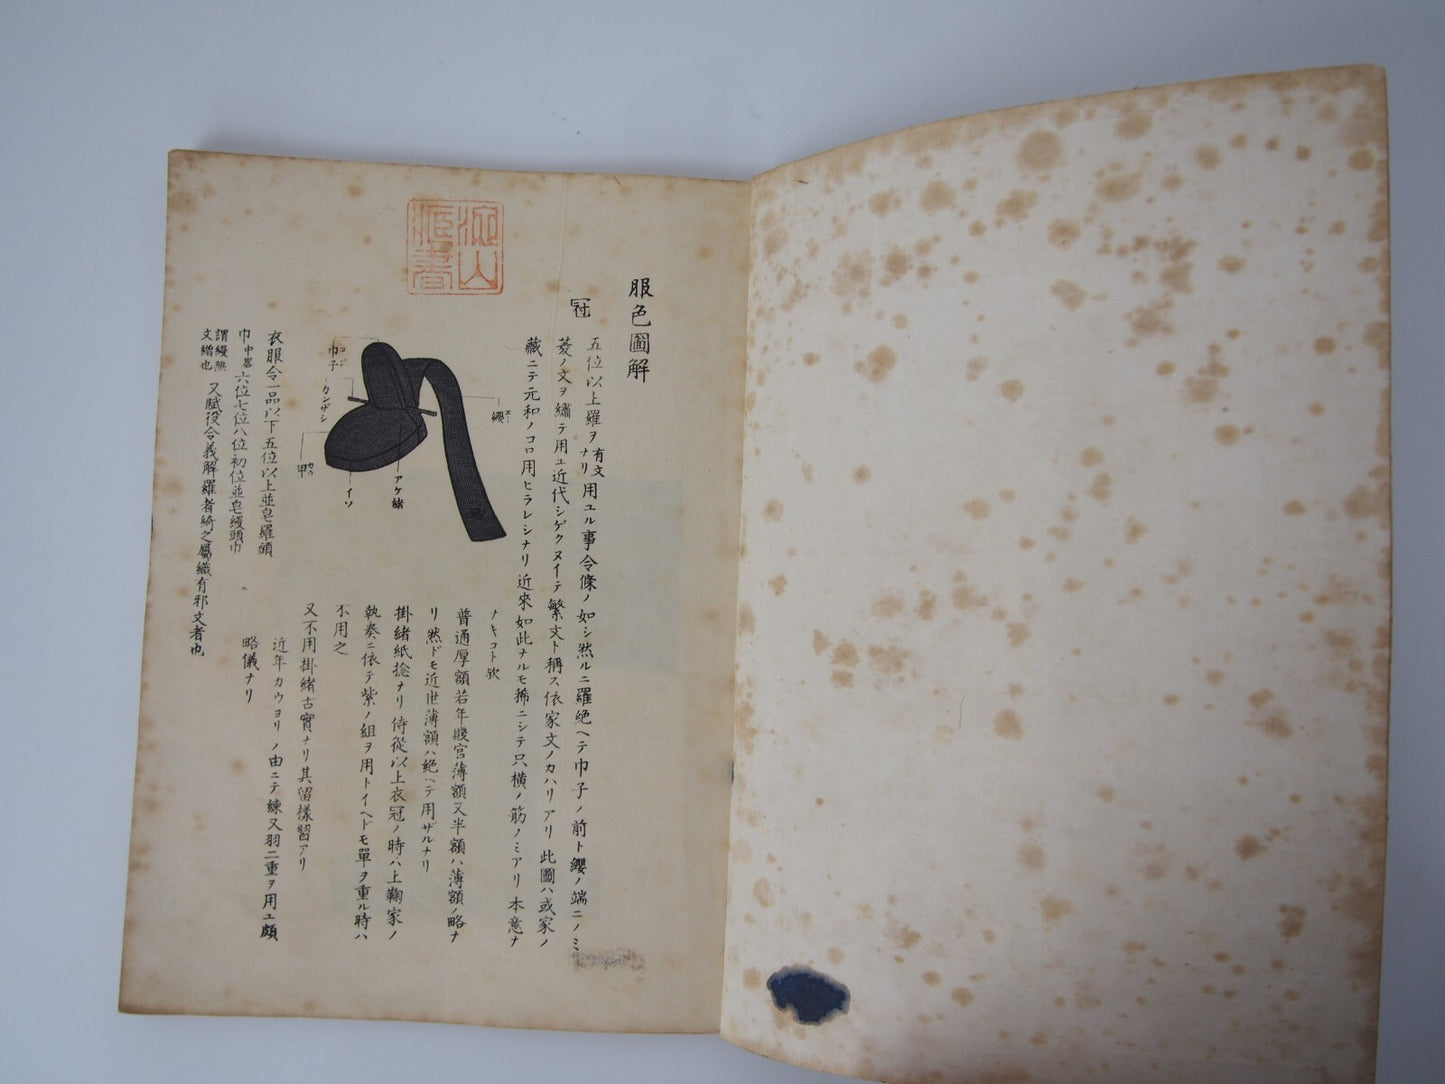 服色圖解
冠
五位以上羅ヲ有文ナリ用ユル事令條ノ如シ然ルニ羅絶ヘテ巾子ノ前ト纓ノ端ニノミ
菱ノ文ヲ繡テ用ユ近代シゲクヌイテ繁文ト稱ス依家文ノカハリアリ此圖ハ或家ノ
藏ニテ元和ノコロ用ヒラレシナリ近來如此ナルモ稀ニシテ只横ノ筋ノミアリ本意ナ
ナキコト欤
普通厚額若年賤官薄額又半額ハ薄額ノ略ナ
リ然ドモ近世薄額ハ絶ヘテ用ザルナリ
掛緒紙捻ナリ侍從以上衣冠ノ時ハ上鞠家ノ
執奏ニ依テ紫ノ組ヲ用トイヘドモ單ヲ重ル時ハ
不用之
又不用掛緒古實ナリ其留樣習アリ
近年カウヨリノ由ニテ練又羽二重ヲ用ユ頗
略儀ナリ
纓
アケ緒
イソ
巾子
コジ
カンザシ
甲
カウ
衣服令一品以下五位以上並皂羅頭
巾中畧六位七位八位初位並皂縵頭巾
謂縵無文繒也又賦役令義解羅者綺之屬織有邪文者也
山
藏書